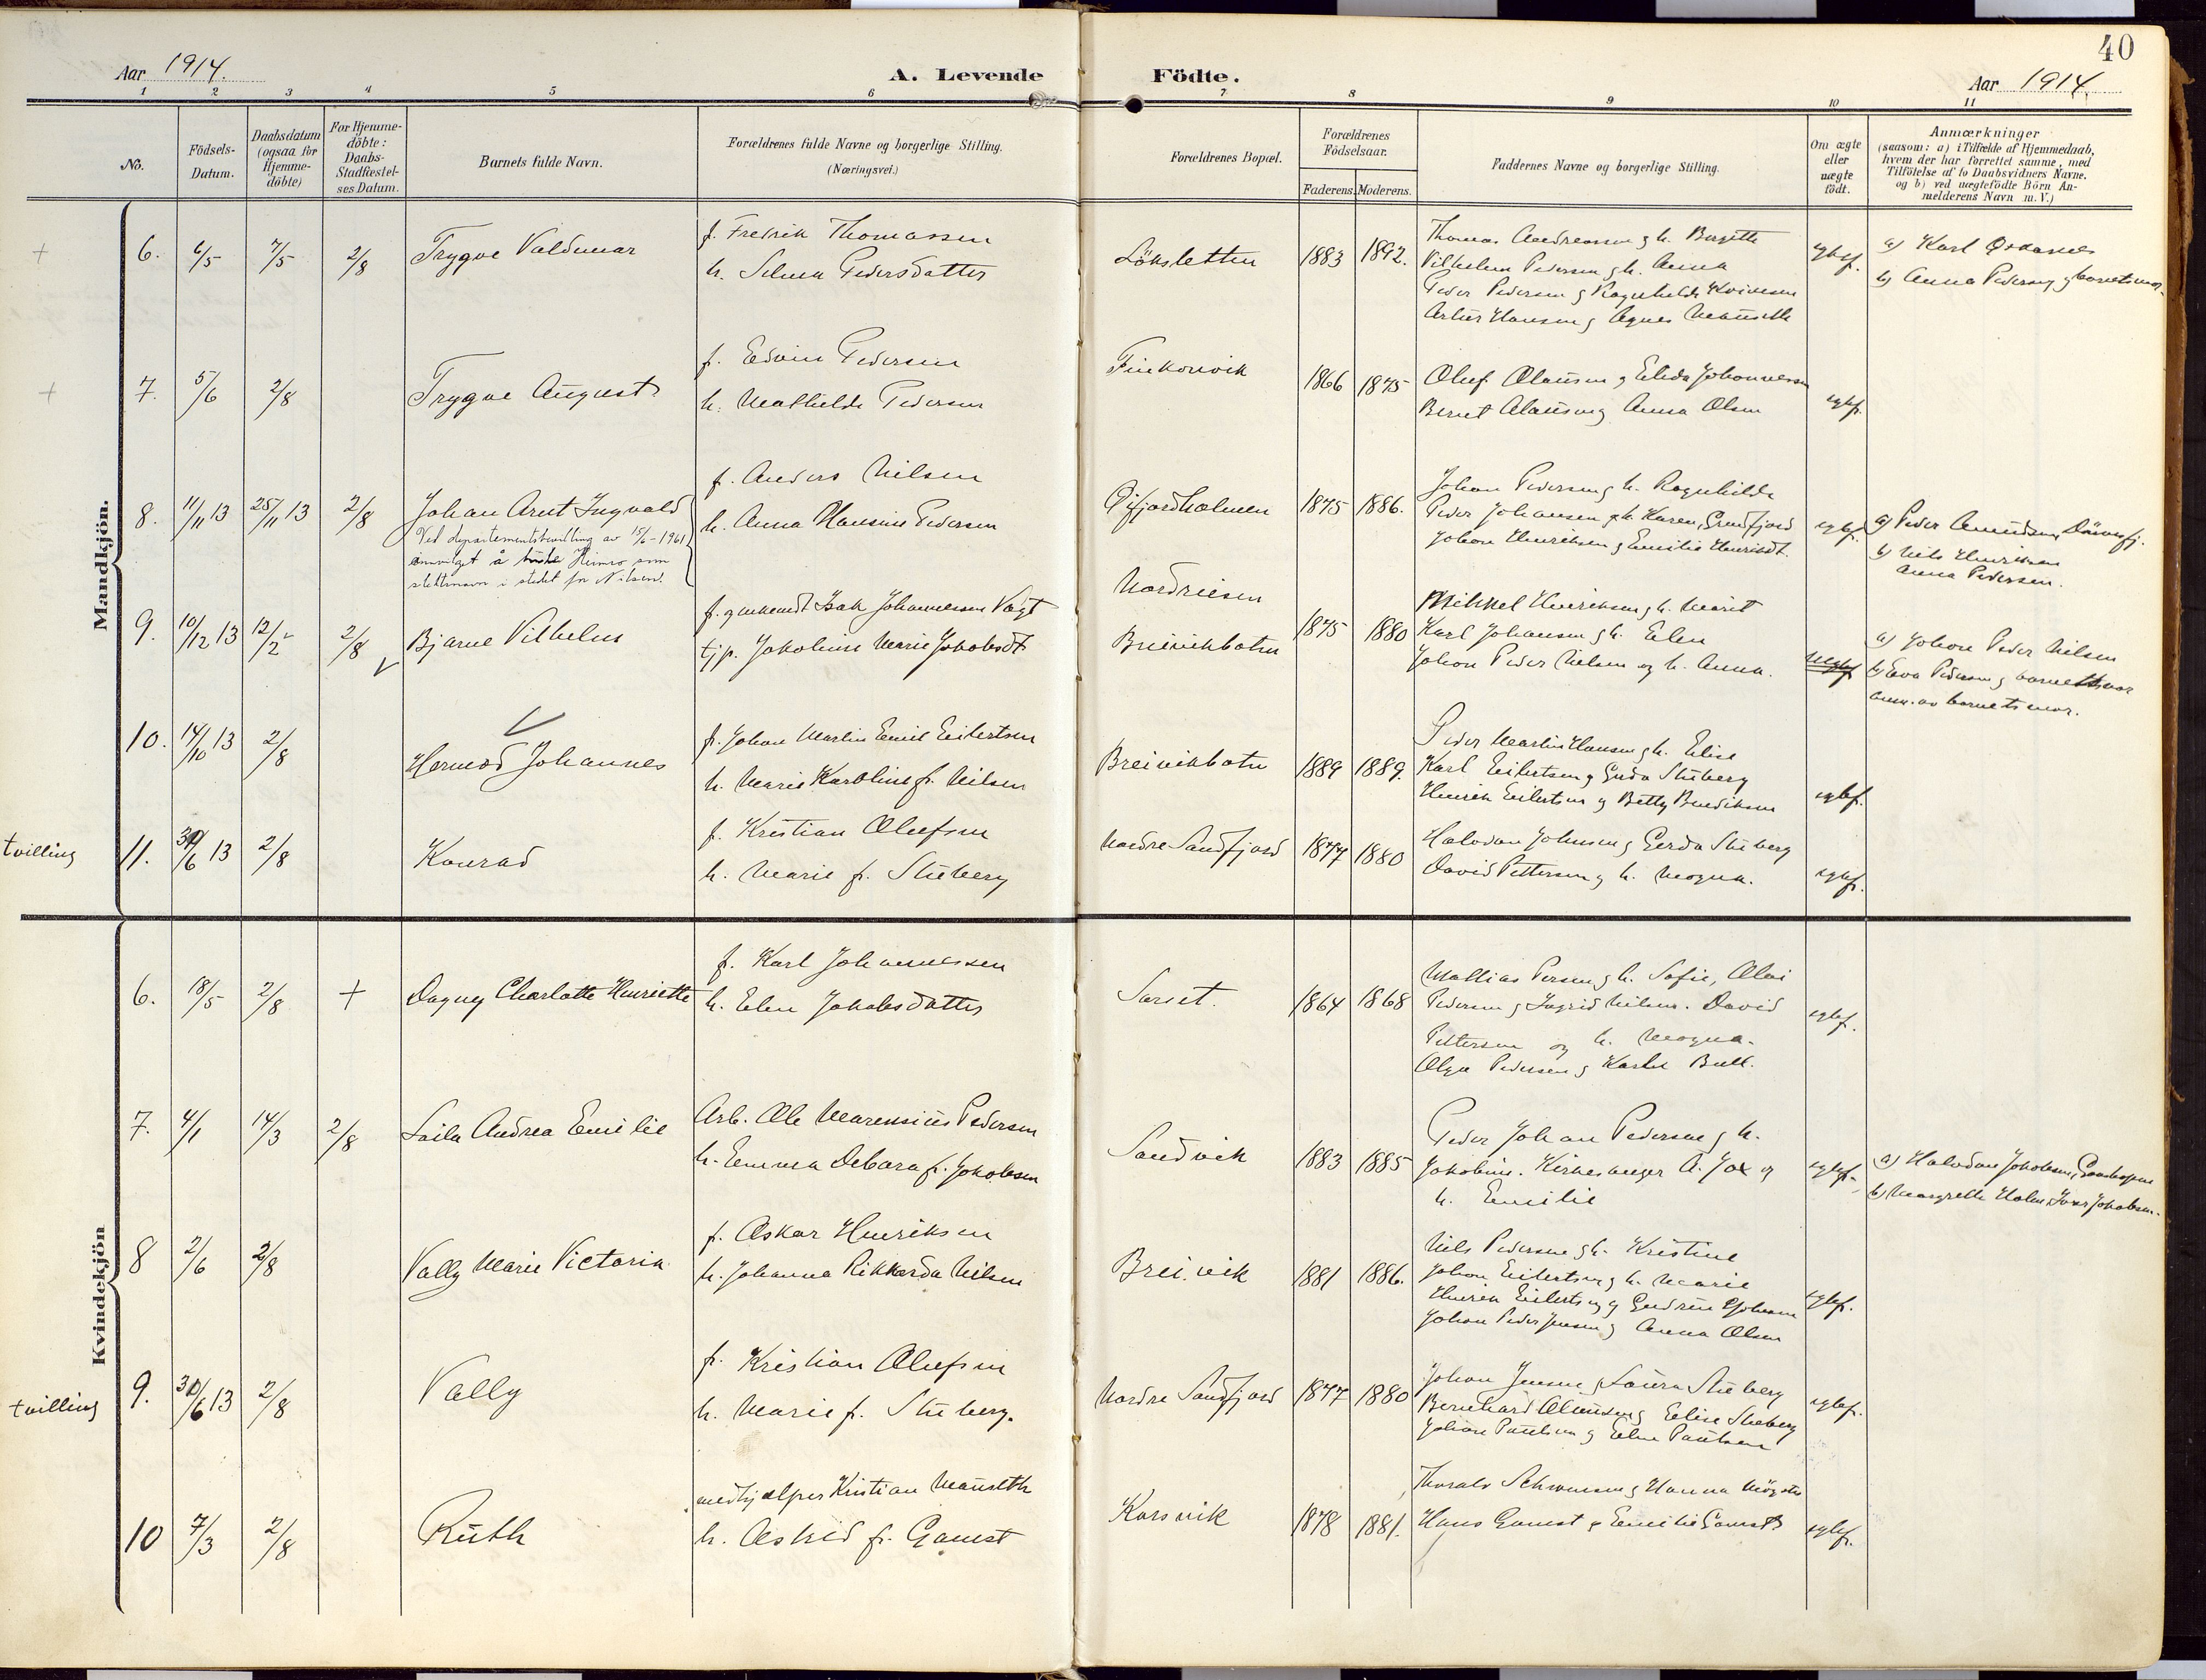 40
Aar 1914.
A. Levende Födte.
Aar 1914.
1 2 3 4 5 6 7 8 9 10 11
No.
Födsels-Datum.
Daabsdatum (ogsaa for Hjemme-döbte)
For Hjemme-döbte: Daabs-Stadfæstel-ses Datum.
Barnets fulde Navn.
Forældrenes fulde Navne og borgerlige Stilling.
(Næringsvei.)
Forældrenes Bopæl.
Forældrenes Födselsaar.
Faderens. Moderens.
Faddernes Navne og borgerlige Stilling.
Om ægte eller uægte födt.
Anmærkninger
(saasom: a) i Tilfælde af Hjemmedaab,
hvem der har forrettet samme, med
Tilföielse af to Daabsvidners Navne.
og b) ved uægtefödte Börn An-
melderens Navn m. V.)
Mandkjön.
+ 6. 6/5 7/5 2/8 Trygve Valdemar
f. Fredrik Thomassen
h. Selma Pedersdatter
Löksletten 1883 1892.
Thomas Andreassen g h. Bergitte
Vilhelm Pedersen g h. Anna
Peder Pedersen g Ragnhilda
Artur Hansen g Agnes Mauseth
egtef.
a) Karl
b) Anna Pedersen g barnets mor.
+ 7. 5/6 2/8 Trygve August
f. Edvin Pedersen
h. Mathilde Pedersen
Finkonvik 1866 1875
Oluf Olausen g Elida Johannessen
Bernt Olausen g Anna Olsen
egtef.
8. 11/11 13 25/11 13 2/8 Johan Arnt Ingvald
Ved departementsbevilling av 15/6-1961
innvilget å Heimro som
slektsnavn i stedet for Nilsen.
f. Anders Nilsen
h. Anna Hansine Pedersen
Öifjordholmen 1875 1886.
Johan Pedersen g h. Ragnhilda
Peder Johansen g h. Karen,
Johan Henriksen g Emilie Henriksdt.
egtef.
a) Peder Amundsen,
b) Nils Henriksen
Anna Pedersen.
9. 10/12 13 12/2 2/8 Bjarne Vilhelm
f. Isak Johannessen Vogt
tjp. Jakobine Marie Jakobsdt
Nordreisen
Breivikbotn
1875 1880
Mikkel Henriksen g h. Marit
Karl Johansen g h. Elen
Johan Peder Nilsen og h. Anna.
uegtef
a) Johan Peder Nilsen
b) Eva Pedersen g barnets mor
anm. av barnets mor.
10. 14/10 13 2/8 Hermod Johannes
f. Johan Martin Emil Eilertsen
h. Marie Karoline f. Nilsen
Breivikbotn 1889 1889.
Peder Martin Hansen g h. Elise
Karl Eilertsen g Gerda Stüberg
Henrik Eilertsen g Betty Bendiksen
egtef.
tvilling 11. 30/6 13 2/8 Konrad
f. Kristian Olufsen
h. Marie f. Stüberg
Nordre Sandfjord 1877 1880
Halvdan Johnsen g Gerda Stüberg
David Pettersen g h. Magna.
egtef.
Kvindekjön
6. 18/5 2/8 + Dagny Charlotte Henriette
f. Karl Johannessen
h. Elen Jakobsdatter
Sørset. 1864 1868
Mathias Persen g h. Sofie, Olai
Pedersen g Ingrid Nilsen. David
Pettersen og h. Magna.
Olga Pedersen g Bull.
egtef.
7. 4/1 14/3 2/8 Laila Andrea Emilie
Arb. Ole Marensius Pedersen
h. Emma Debora f. Jakobsen
Sandvik 1883 1885
Peder Johan Pedersen g h.
Jakobine. Kirkesanger A. Jox g
h. Emilie
egtef.
a) Halvdan Jakobsen,
b) Margrethe Holm, Jakobsen.
8 2/6 2/8 Vally Marie Victoria
f. Oskar Henriksen
h. Johanna Rikkarda Nilsen
Breivik 1881 1886.
Nils Pedersen g h. Kristine
Johan Eilertsen g h. Marie
Henrik Eilertsen g Gudrun
Johan Peder Jensen g Anna Olsen
egtef.
tvilling 9. 30/6 13 2/8 Vally
f. Kristian Olufsen
h. Marie f. Stüberg.
Nordre Sandfjord 1877 1880
Johan Jensen g Laura Stüberg
Bernhard Olausen g Elise Stüberg
Johan Paulsen g Eline Paulsen
egtef.
10 7/3 2/8 Ruth
medhjælper Kristian Mauseth
h. Astrid f. Gamst
Korsvik 1878 1881.
Thorolv g Hanna
Hans Gamst g Emilie Gamst
egtef.